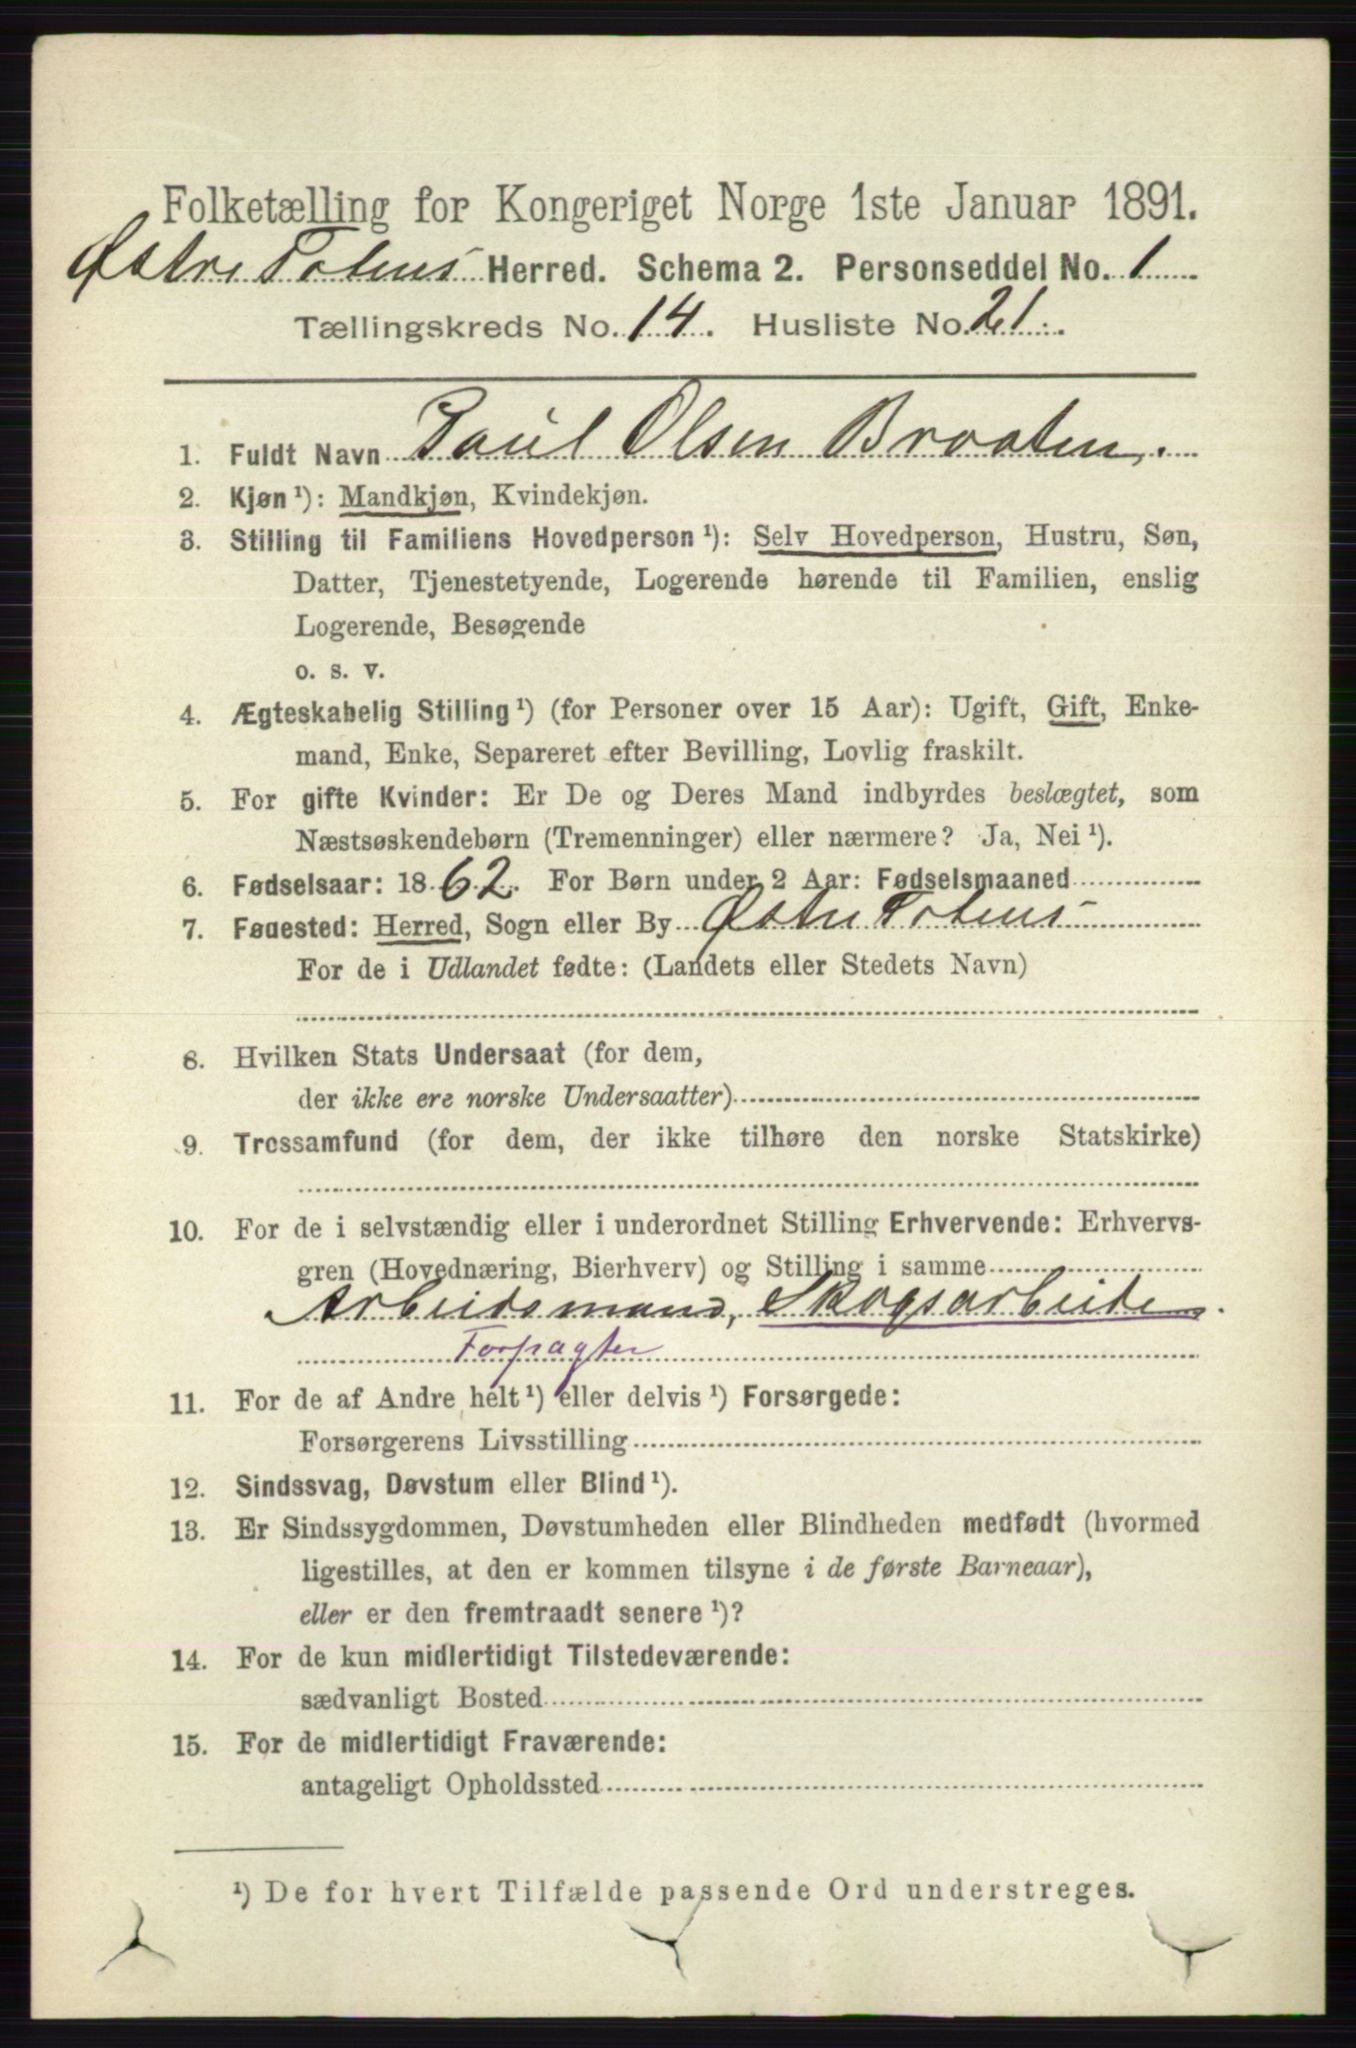 Folketælling for Kongeriget Norge 1ste Januar 1891.
Østre Totens Herred. Schema 2. Personseddel No. 1
Tællingskreds No. 14. Husliste No. 21.
1. Fuldt Navn Paul Olsen Braaten.
2. Kjøn ¹): Mandkjøn, Kvindekjøn.
3. Stilling til Familiens Hovedperson ¹): Selv Hovedperson, Hustru, Søn,
Datter, Tjenestetyende, Logerende hørende til Familien, enslig
Logerende, Besøgende
o. s. v.
4. Ægteskabelig Stilling ¹) (for Personer over 15 Aar): Ugift, Gift, Enke-
mand, Enke, Separeret efter Bevilling, Lovlig fraskilt.
5. For gifte Kvinder: Er De og Deres Mand indbyrdes beslægtet, som
Næstsøskendebørn (Tremenninger) eller nærmere? Ja, Nei ¹).
6. Fødselsaar: 1862. For Børn under 2 Aar: Fødselsmaaned
7. Fødested: Herred, Sogn eller By Østre Totens
For de i Udlandet fødte: (Landets eller Stedets Navn)
8. Hvilken Stats Undersaat (for dem,
der ikke ere norske Undersaatter)
9. Trossamfund (for dem, der ikke tilhøre den norske Statskirke)
10. For de i selvstændig eller i underordnet Stilling Erhvervende: Erhvervs-
gren (Hovednæring, Bierhverv) og Stilling i samme
Arbeidsmand, Skogsarbeider.
Forpagter
11. For de af Andre helt ¹) eller delvis ¹) Forsørgede:
Forsørgerens Livsstilling
12. Sindssvag, Døvstum eller Blind ¹).
13. Er Sindssygdommen, Døvstumheden eller Blindheden medfødt (hvormed
ligestilles, at den er kommen tilsyne i de første Barneaar),
eller er den fremtraadt senere ¹)?
14. For de kun midlertidigt Tilstedeværende:
sædvanligt Bosted
15. For de midlertidigt Fraværende:
antageligt Opholdssted
¹) De for hvert Tilfælde passende Ord understreges.